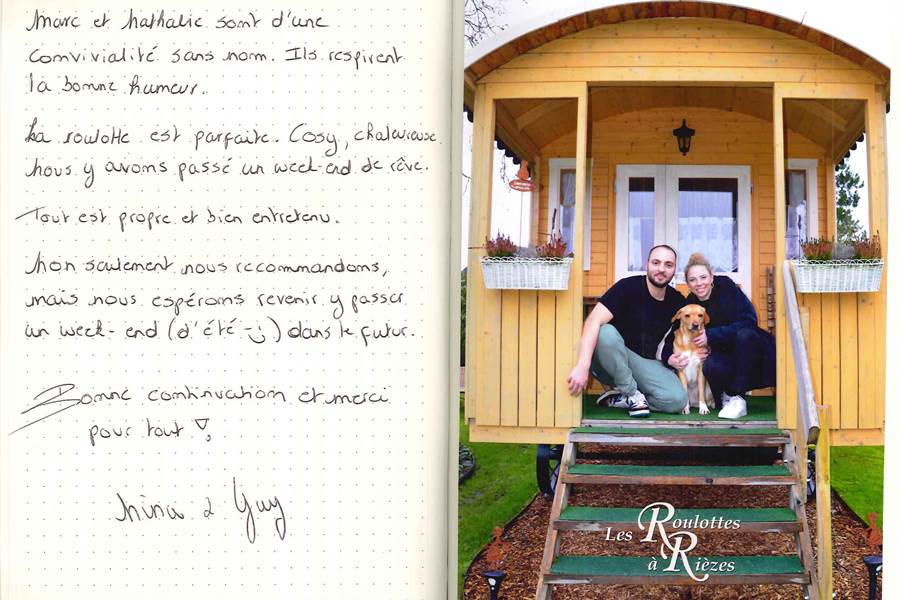 Marc et Nathalie sont d'une
convivialité sans nom. Ils respirent
la bonne humeur.
La roulotte est parfaite. Cosy, chaleureuse.
Nous y avons passé un week-end de rêve.
Tout est propre et bien entretenu.
Non seulement nous recommandons,
mais nous espérons revenir y passer
un week-end (d'été :-)) dans le futur.
Bonne continuation et merci
pour tout
Nina & Guy
Les Roulottes
à Rièzes